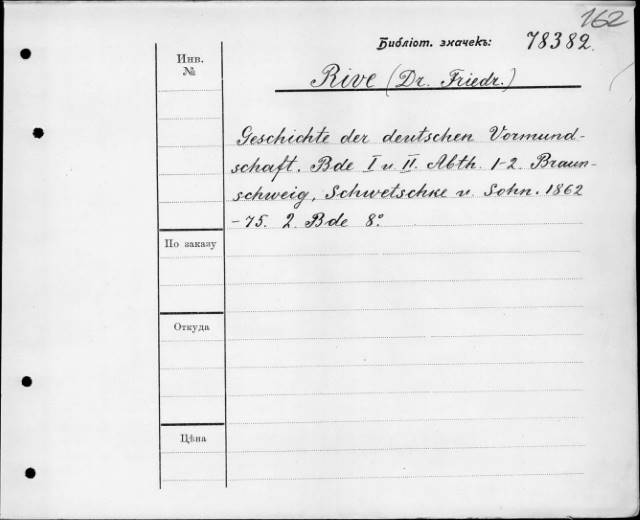 162
Библіот. значекъ: 78382.
Инв.
№
Rive (Dr. Friedr.)
Geschichte der deutschen Vormund-
schaft. Bde I u. II. Abth. 1-2. Braun-
schweig, Schwetschke u. Sohn. 1862
-75. 2 Bde 8º.
По заказу
Откуда
Цѣна